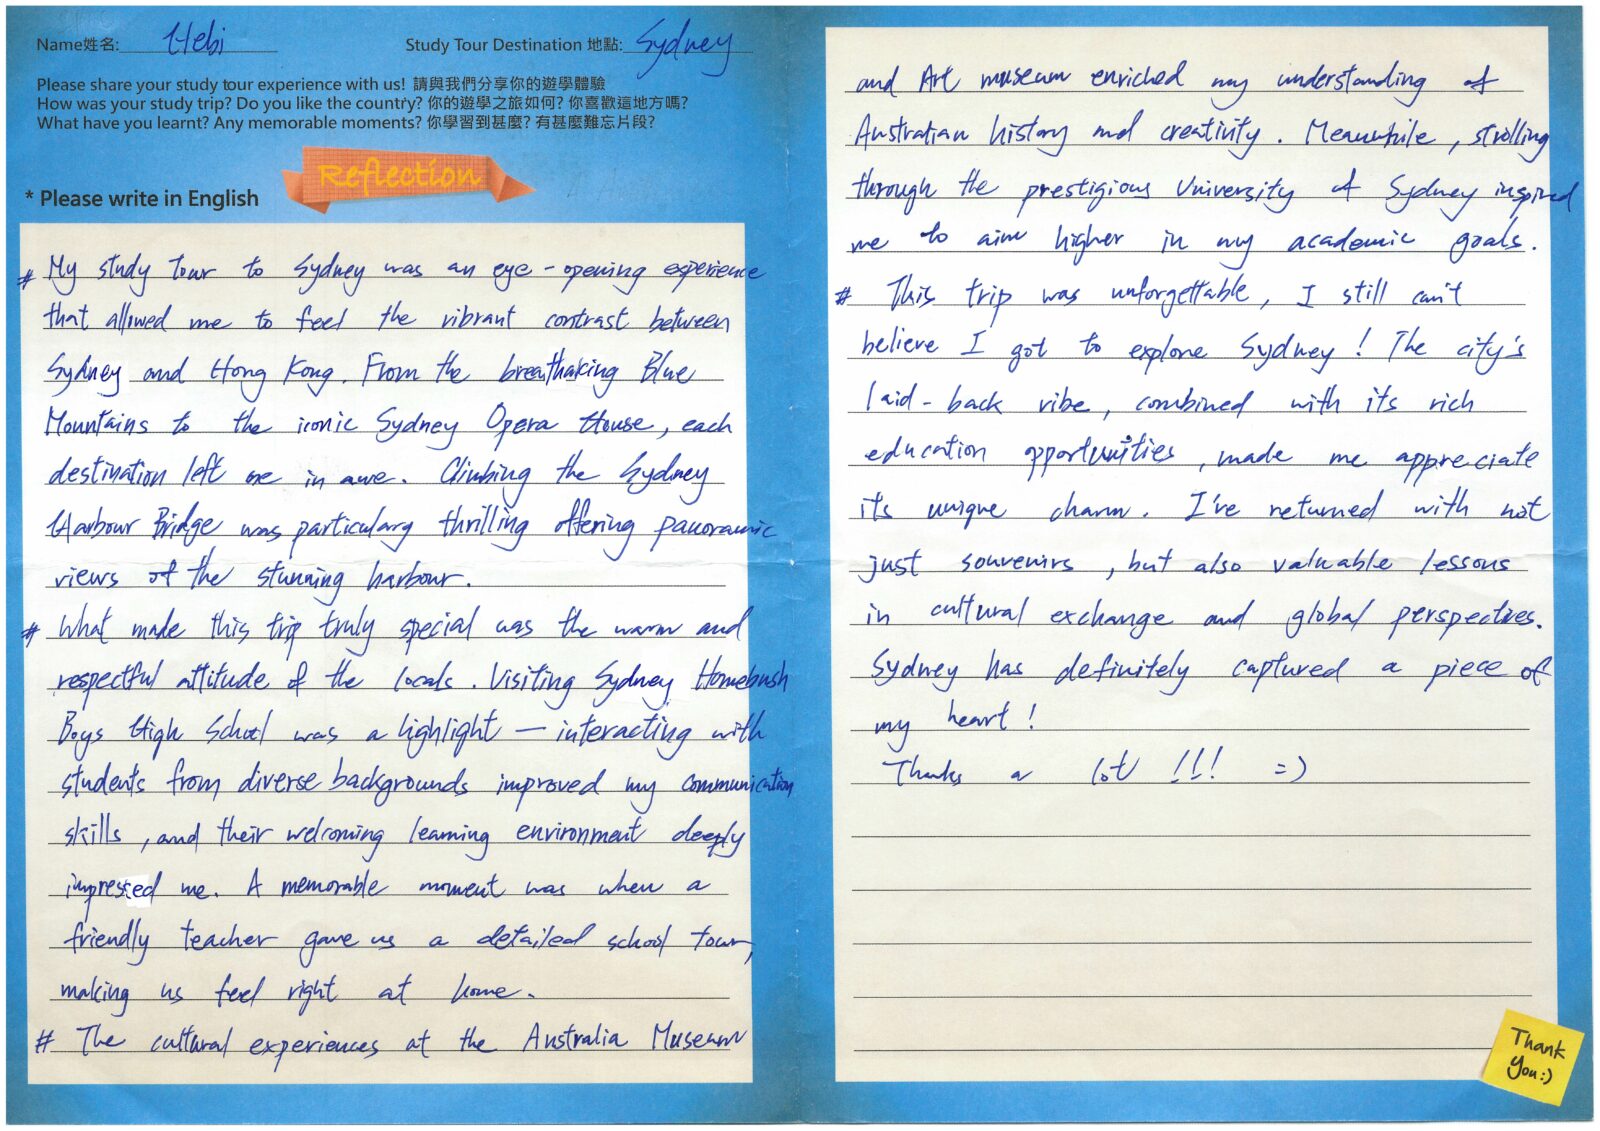 Name姓名: Hebi
Study Tour Destination 地點: Sydney
Please share your study tour experience with us! 請與我們分享你的遊學體驗
How was your study trip? Do you like the country? 你的遊學之旅如何? 你喜歡這地方嗎?
What have you learnt? Any memorable moments? 你學習到甚麼? 有甚麼難忘片段?
Reflection
* Please write in English
# My study tour to Sydney was an eye-opening experience
that allowed me to feel the vibrant contrast between
Sydney and Hong Kong. From the breathtaking Blue
Mountains to the iconic Sydney Opera House, each
destination left me in awe. Climbing the Sydney
Harbour Bridge was particularly thrilling offering panoramic
views of the stunning harbour.
# What made this trip truly special was the warm and
respectful attitude of the locals. Visiting Sydney Homebush
Boys High School was a highlight — interacting with
students from diverse backgrounds improved my communication
skills, and their welcoming learning environment deeply
impressed me. A memorable moment was when a
friendly teacher gave us a detailed school tour,
making us feel right at home.
# The cultural experiences at the Australia Museum
and Art museum enriched my understanding of
Australian history and creativity. Meanwhile, strolling
through the prestigious University of Sydney inspired
me to aim higher in my academic goals.
# This trip was unforgettable, I still can't
believe I got to explore Sydney! The city's
laid-back vibe, combined with its rich
education opportunities, made me appreciate
its unique charm. I've returned with not
just souvenirs, but also valuable lessons
in cultural exchange and global perspectives.
Sydney has definitely captured a piece of
my heart!
Thanks a lot !!! =)
Thank
You:)